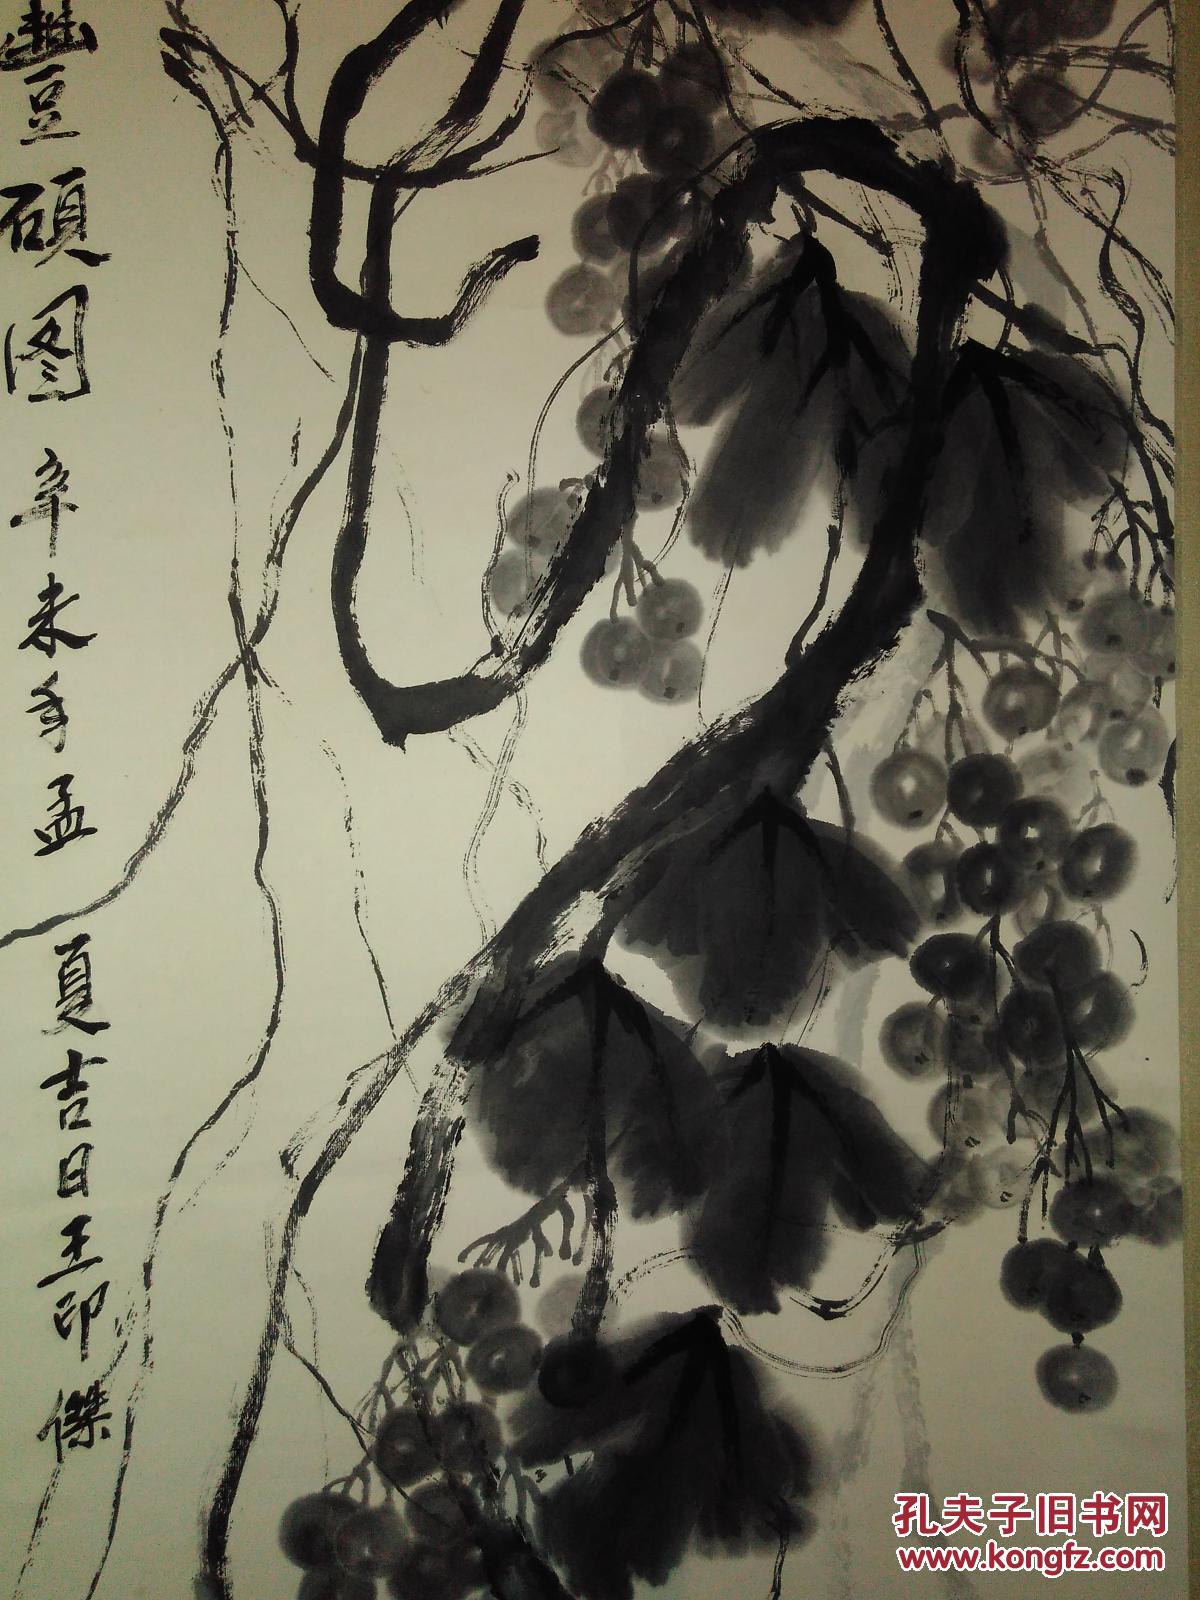 豐碩图 辛未年孟夏吉日王印傑
孔夫子旧书网
www.kongfz.com